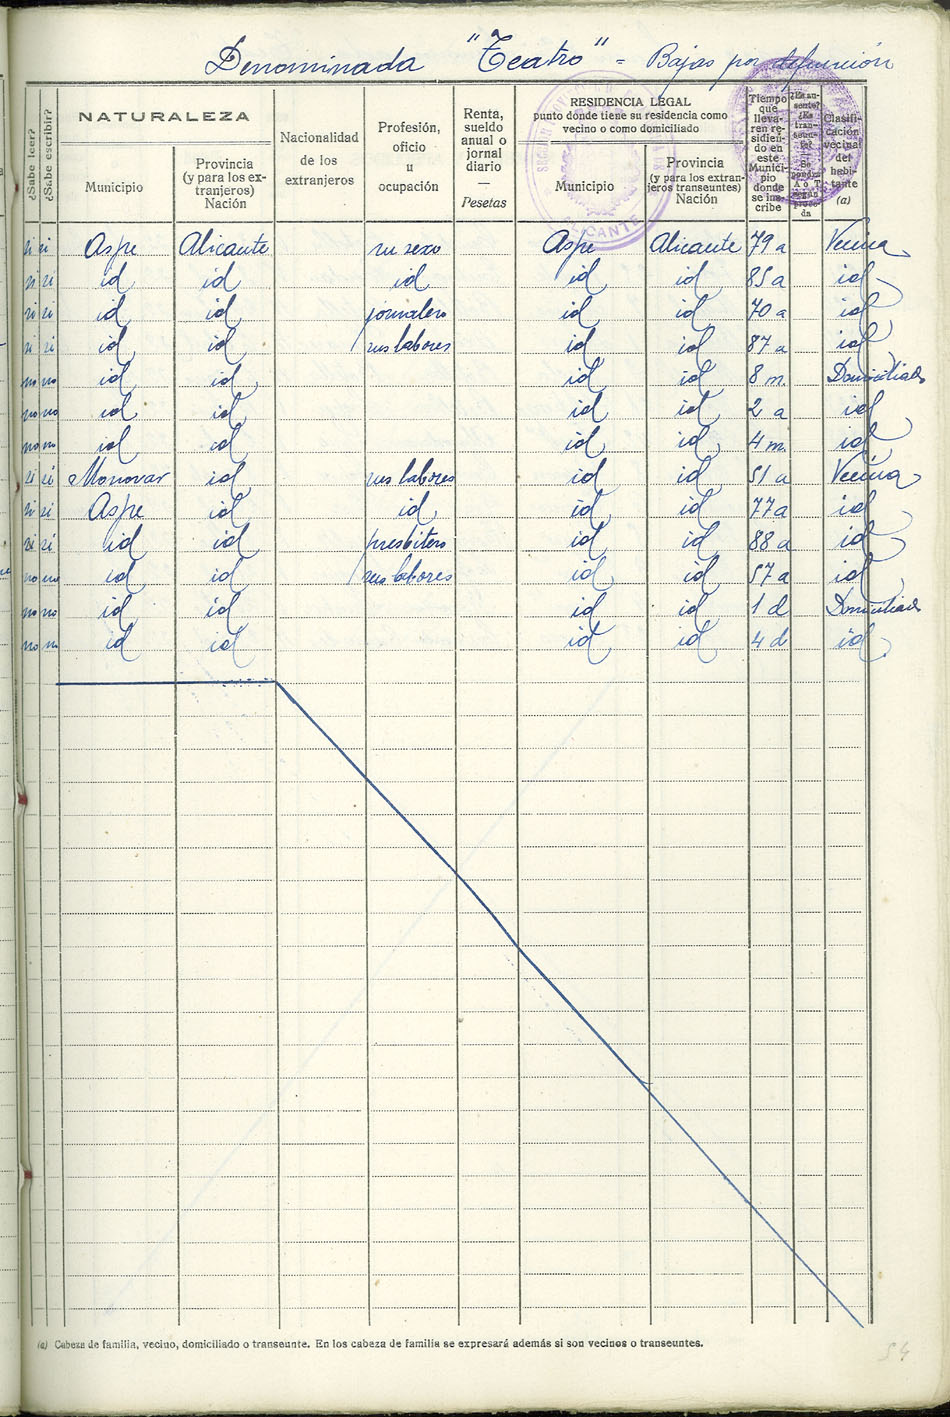 Denominada "Teatro" = Bajas por defunción
¿Sabe leer?
¿Sabe escribir?
NATURALEZA
Municipio
Provincia
(y para los ex-
tranjeros)
Nación
Nacionalidad
de los
extranjeros
Profesión,
oficio
u
ocupación
Renta,
sueldo
anual o
jornal
diario
—
Pesetas
RESIDENCIA LEGAL
punto donde tiene su residencia como
vecino o como domiciliado
Municipio
Provincia
(y para los extran-
jeros transeuntes)
Nación
Tiempo
que
lleva-
ren re-
sidien-
do en
este
Munici-
pio
donde
se ins-
cribe
Clasifi-
cación
vecinal
del
habi-
tante
(a)
ALICANTE
si si Aspe Alicante su sexo Aspe Alicante 79 a Vecina
si si id id id id id 85 a id
si si id id jornalero id id 70 a id
si si id id sus labores id id 87 a id
no no id id id id 8 m. Domiciliado
no no id id id id 2 a id
no no id id id id 4 m. id
si si Monovar id sus labores id id 51 a Vecina
si si Aspe id id id id 77 a id
si si id id presbitero id id 88 a id
no no id id sus labores id id 57 a id
no no id id id id 1 d Domiciliado
no no id id id id 4 d id
(a) Cabeza de familia, vecino, domiciliado o transeunte. En los cabeza de familia se expresará además si son vecinos o transeuntes.
54